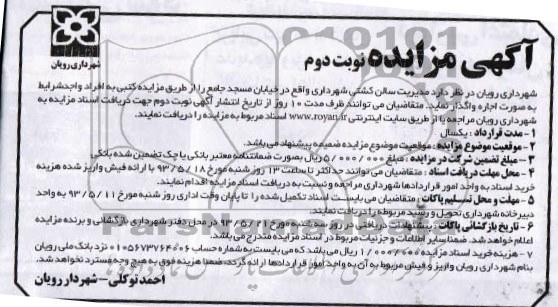 آگهی مزایده نوبت دوم
شهرداری رویان
شهرداری رویان در نظر دارد مدیریت سالن کشتی شهرداری واقع در خیابان مسجد جامع را از طریق مزایده کتبی به افراد واجدشرایط
به صورت اجاره واگذار نماید. متقاضیان می توانند ظرف مدت ۱۰ روز از تاریخ انتشار آگهی نوبت دوم جهت دریافت اسناد مزایده به
شهرداری رویان مراجعه یا از طریق سایت اینترنتی www.royan.ir اسناد مربوط به مزایده را دریافت نمایند.
۱- مدت قرارداد : یکسال
۲- موقعیت موضوع مزایده : موقعیت موضوع مزایده ضمیمه پیشنهاد می باشد.
۳- مبلغ تضمین شرکت در مزایده : مبلغ ۵/۰۰۰/۰۰۰ ریال بصورت ضمانتنامه معتبر بانکی یا چک تضمین شده بانکی
۴- محل مهلت دریافت اسناد : متقاضیان می توانند حداکثر تا ساعت ۱۳ روز شنبه مورخ ۹۳/۵/۱۸ با ارائه فیش واریز شده هزینه
خرید اسناد به واحد امور قراردادها شهرداری مراجعه و نسبت به دریافت اسناد مزایده اقدام نمایند.
۵- مهلت و محل تسلیم پاکات : متقاضیان می بایست اسناد تکمیل شده را تا پایان وقت اداری روز شنبه مورخ ۹۳/۵/۱۱ به واحد
دبیرخانه شهرداری تحویل و رسید مربوطه را دریافت نمایند.
۶- تاریخ بازگشائی پاکات : پیشنهادات دریافتی در روز سه شنبه مورخ ۹۳/۵/۲۱ در محل دفتر شهرداری بازگشائی و برنده مزایده
اعلام خواهد شد. ضمنا سایر اطلاعات و جزئیات مربوط در اسناد مزایده مندرج می باشد.
۷- هزینه خرید اسناد مزایده ۱/۰۰۰/۰۰۰ ریال می باشد که می بایست به شماره حساب ۰۱۰۵۶۷۳۷۶۴۰۰۶ نزد بانک ملی رویان
بنام شهرداری رویان واریز و فیش مربوط به آن به واحد امور قراردادها ارائه گردد. ضمنا هزینه فوق به هیچ وجه مسترد نخواهد شد.
احمد توکلی - شهردار رویان